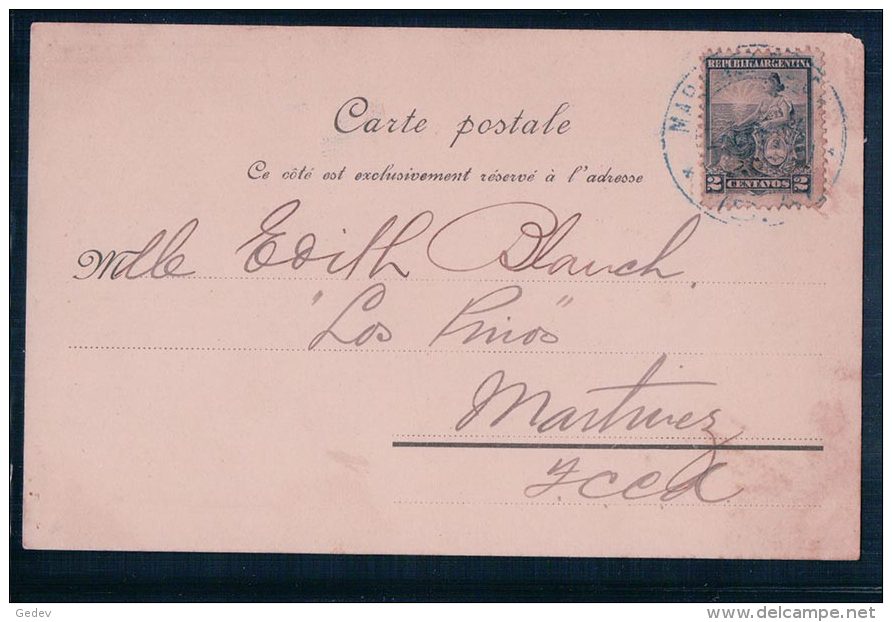 REPUBLICA ARGENTINA
2 CENTAVOS 2
MAR
Carte postale
Ce côté est exclusivement réservé à l'adresse
Mlle Edith Blanch
"Los Pinos"
Martinez
FCCA
Gedev
www.delcampe.net